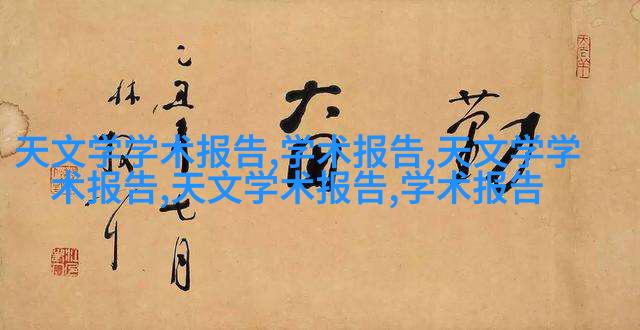 勤奋
乙丑年七月
林散
天文学学术报告,学术报告,天文学学
术报告,天文学术报告,学术报告